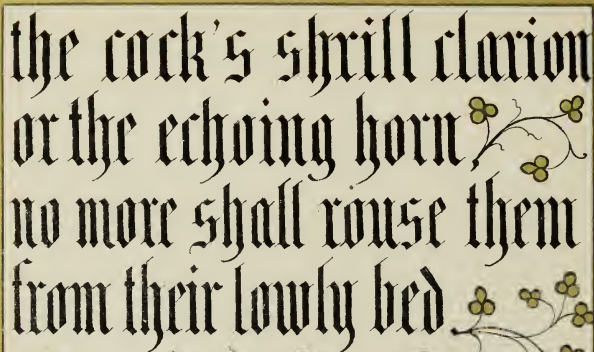 the cock's shrill clarion
or the echoing horn,
no more shall rouse them
from their lowly bed